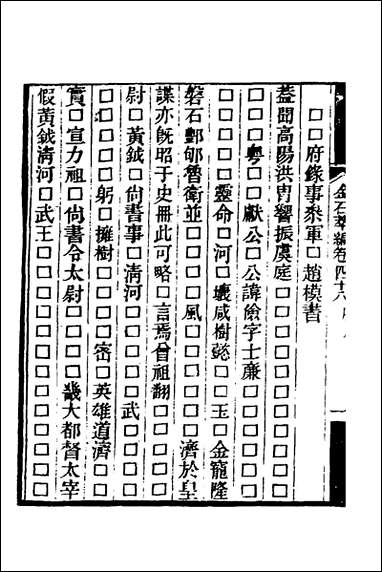 金石萃編卷四十六
□□府錄事叅軍□趙模書
蓋聞高陽洪胄響振虞庭□□□□□□□□□□□
□□□粵□獻公□公諱儉字士廉□□□□□□□
□□□□□靈命□河□壤咸樹懿□□玉□金寵隆
磐石酆郇魯衛並□□□□風□□□□□□濟於皇
諜亦旣昭于史冊此可略□言焉曾祖翻□□□□□
尉□黃鉞□尚書事□清河□□□□□武□□□□
□□□□□躬□擁樹□□□□密□英雄道濟□□
實□宣力祖□尚書令太尉□□□□畿大都督太宰
假黃鉞清河□武王□□□□□□□□□□□□□